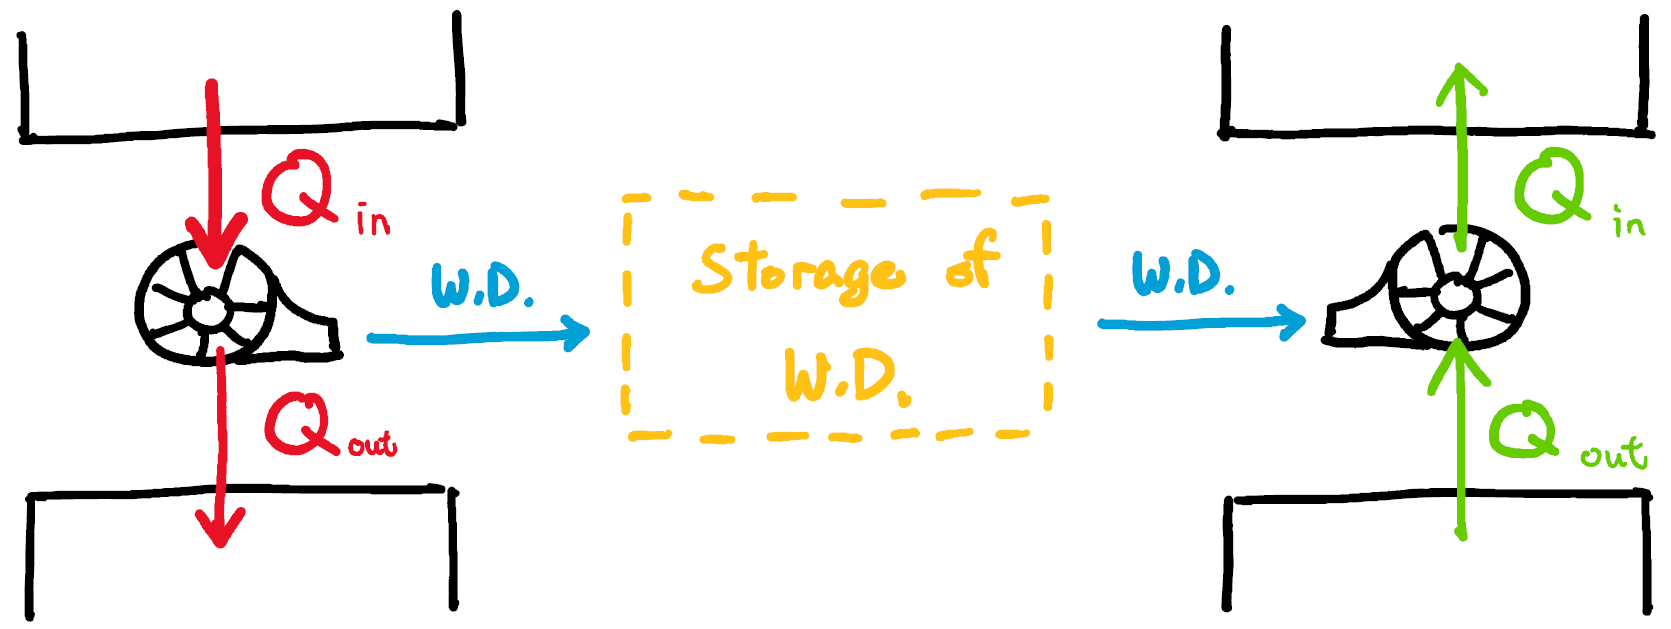 Q in
W.D.
Q out
Storage of
W.D.
W.D.
Q in
Q out